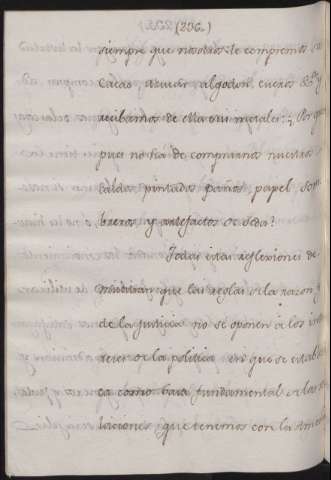 (236.)
siempre que nosotros le compremos su
Cacao, azucar, algodon, cueros &a. y
recibamos de ella oro i metales: ¿Por que
pues no ha de comprarnos nuestras
caldos, pintados, paños, papel, som
breros, y artefactos de seda?
Todas estas reflexiones de
muestran que las reglas de la razon, y
de la justicia no se oponen á los inte
reses de la politica en que se estable
ca como basa fundamental de las re
laciones, que tenemos con la Ame